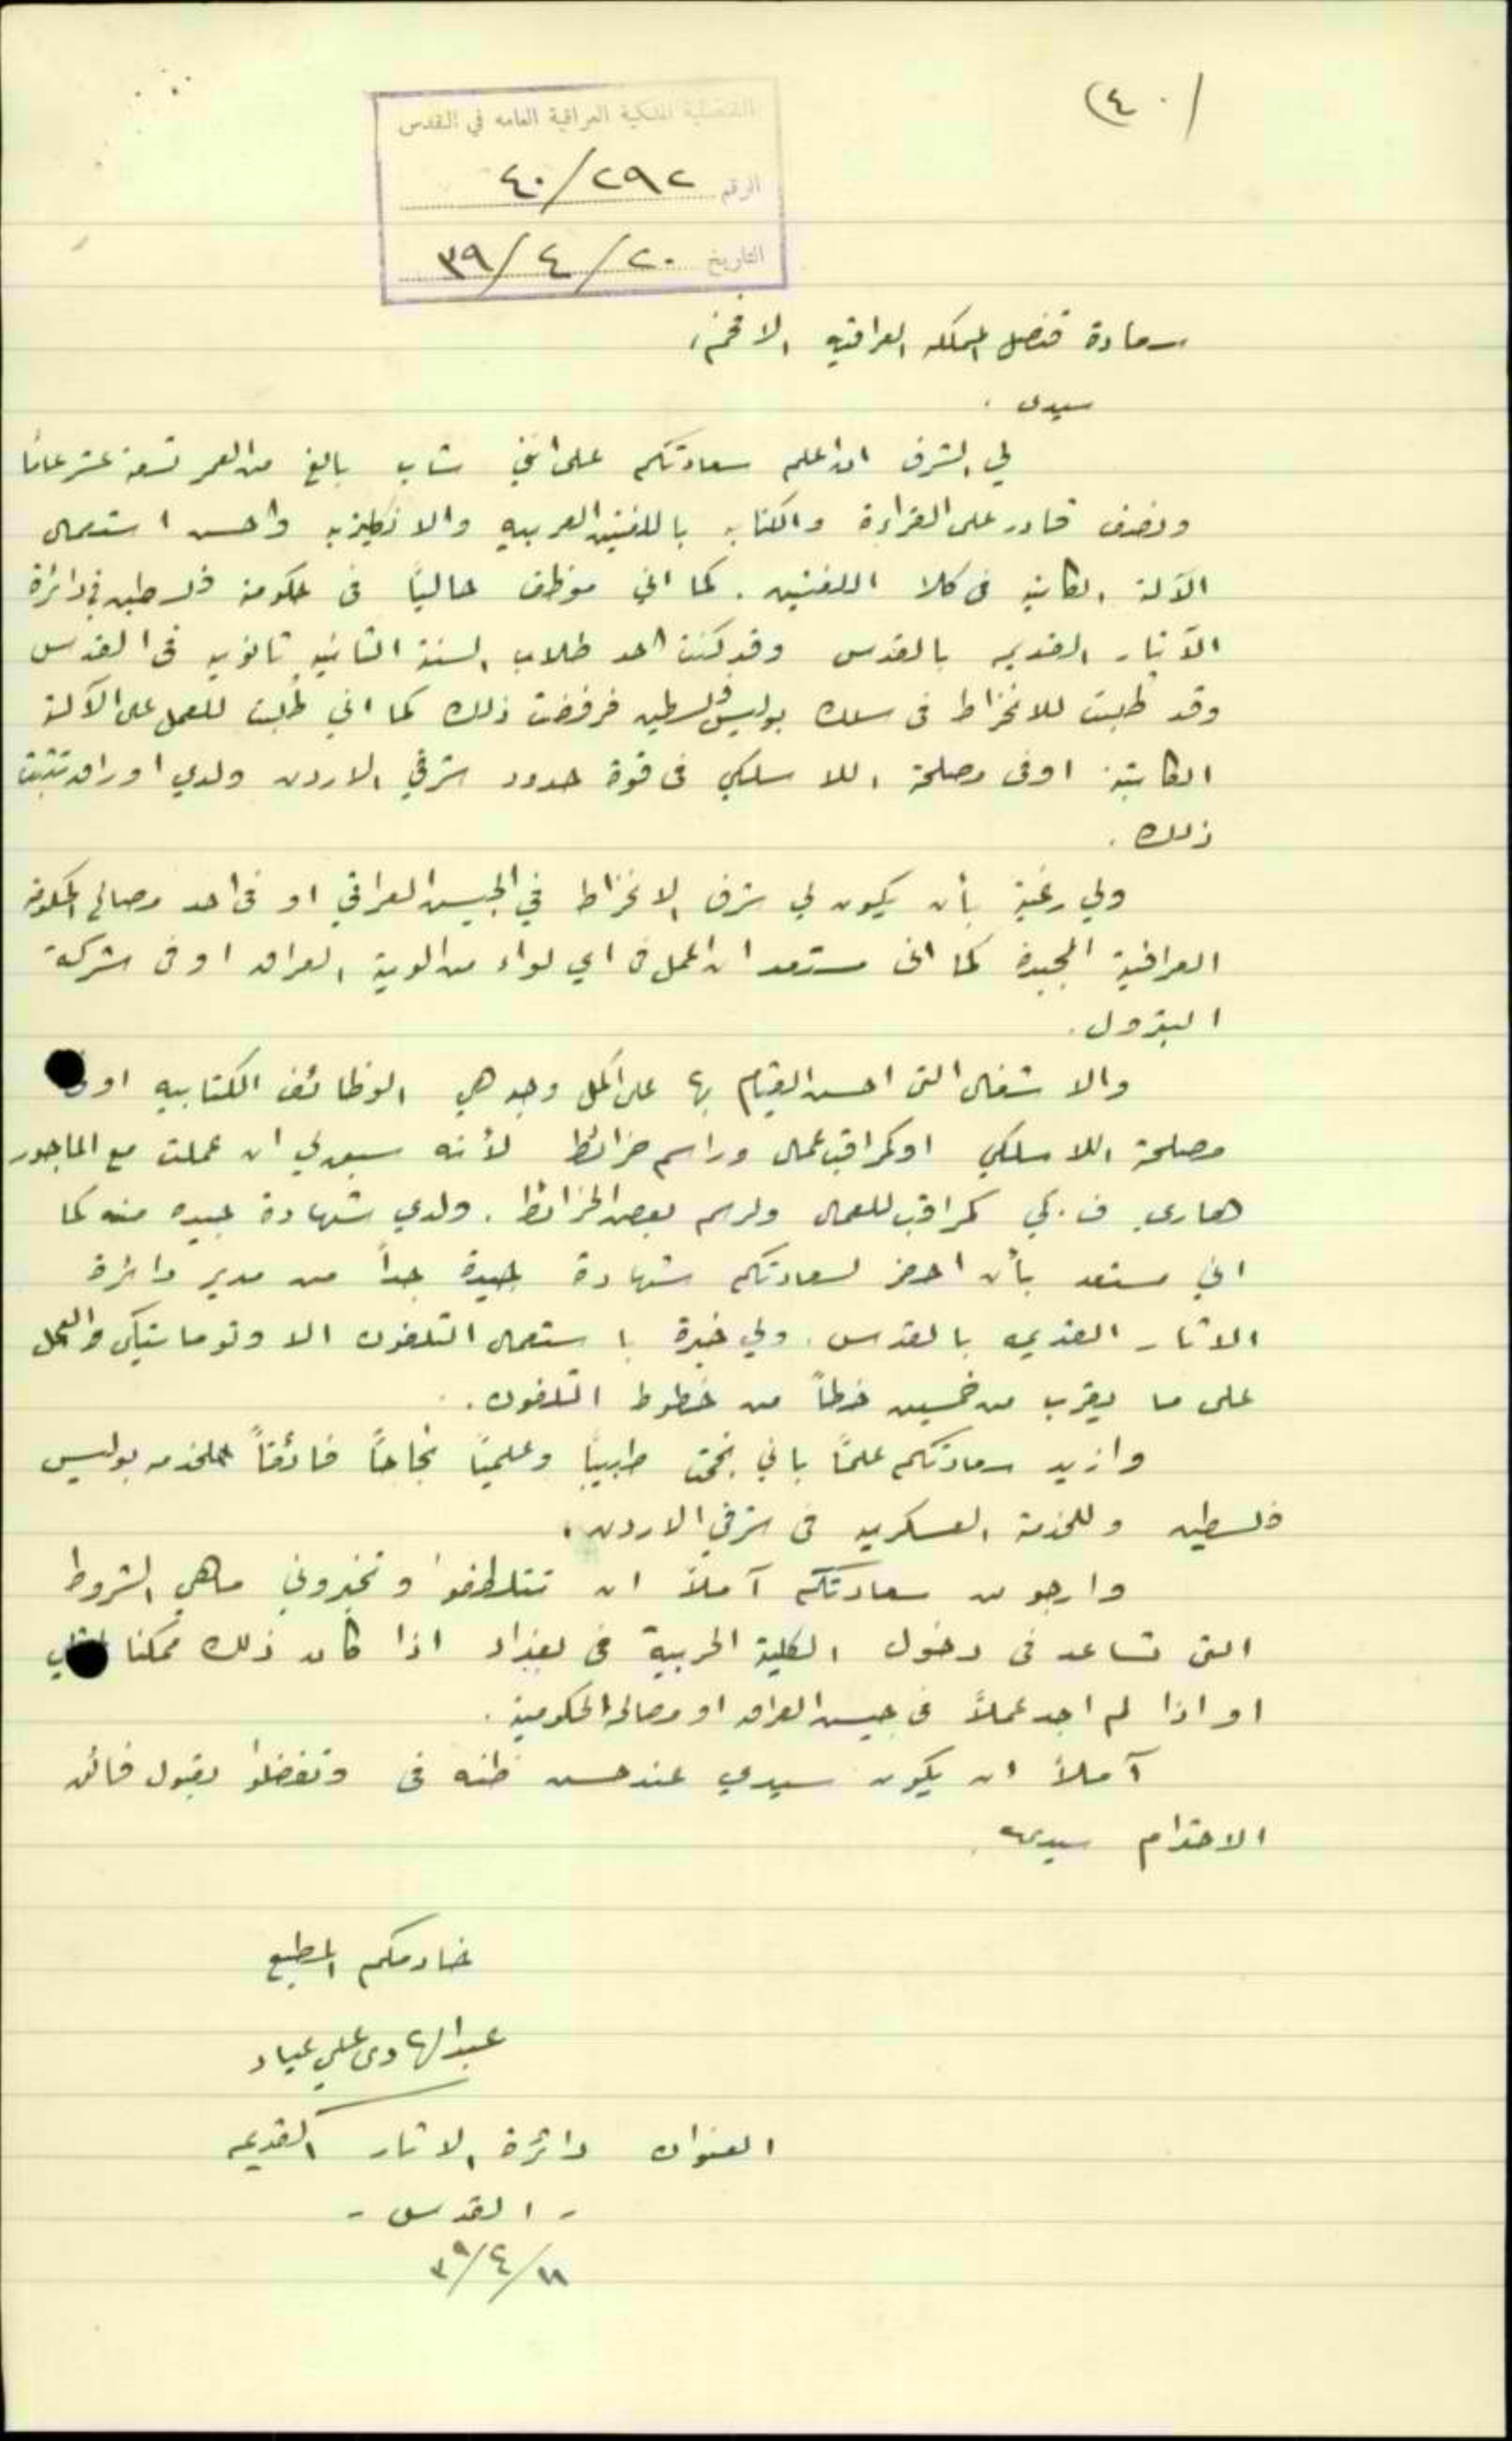 (٤٠
القنصلية الملكية العراقية العامه في القدس
الرقم ٤٠/٢٩٢
التاريخ ٣٩/٤/٢٠
سعادة قنصل المملكه العراقيه الافخم،
سيدى .
لي الشرف ان اعلم سعادتكم على انني شاب بالغ من العمر تسعة عشر عامًا
ونصف قادر على القراءة والكتابه باللغتين العربيه والانكليزيه واحسن استعمال
الآلة الكاتبه فى كلا اللغتين . كما اني موظف حاليًا فى حكومة فلسطين في دائرة
الآثار القديمه بالقدس وقد كنت احد طلاب السنة الثانيه ثانويه فى القدس
وقد طلبت للانخراط فى سلك بوليس فلسطين فرفضت ذلك كما اني طلبت للعمل على الآلة
الكاتبة او فى مصلحة اللاسلكي فى قوة حدود شرقي الاردن ولدي اوراق تثبت
ذلك .
ولي رغبة بأن يكون لي شرف الانخراط في الجيش العراقي او فى احد مصالح الحكومة
العراقية المجيدة كما انى مستعد ان اعمل فى اي لواء من الوية العراق او فى شركة
البترول .
والاشغال التى احسن القيام بها على اكمل وجه هي الوظائف الكتابيه او فى
مصلحة اللاسلكي او كمراقب عمال وراسم خرائط لأنه سبق لي ان عملت مع الماجور
هاري ف . كمراقب للعمال ولرسم بعض الخرائط . ولدي شهادة جيده منه كما
اني مستعد بأن احضر لسعادتكم شهادة جيدة جداً من مدير دائرة
الاثار القديمه بالقدس . ولي خبرة باستعمال التلفون الاوتوماتيكى والعمل
على ما يقرب من خمسين خطاً من خطوط التلفون .
وازيد سعادتكم علمًا باني نجحت طبيًا وعلميًا نجاحًا فائقاً للخدمه بوليس
فلسطين وللخدمة العسكريه فى شرقي الاردن .
وارجو من سعادتكم آملاً ان تتلطفوا وتخبروني ماهي الشروط
التى تساعد فى دخول الكلية الحربية فى بغداد اذا كان ذلك ممكنا
او اذا لم اجد عملاً فى جيش العراق او مصالحه الحكومية .
آملاً ان يكون سيدي عند حسن ظنه فى وتفضلوا بقبول فائق
الاحترام سيدى .
خادمكم المطيع
عبد الهادى علي عياد
العنوان دائرة الاثار القديمه
- القدس -
٣٩/٤/١٨